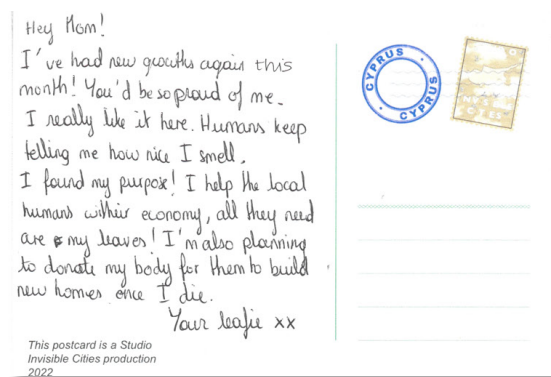 Hey Mom!
I've had new growths again this
month! You'd be so proud of me.
I really like it here. Humans keep
telling me how nice I smell.
I found my purpose! I help the local
humans w their economy, all they need
are my leaves! I'm also planning
to donate my body for them to build
new homes once I die.
Your leafie xx
This postcard is a Studio
Invisible Cities production
2022
CYPRUS
CYPRUS